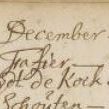 December
Frasier
de Kock
Schouten